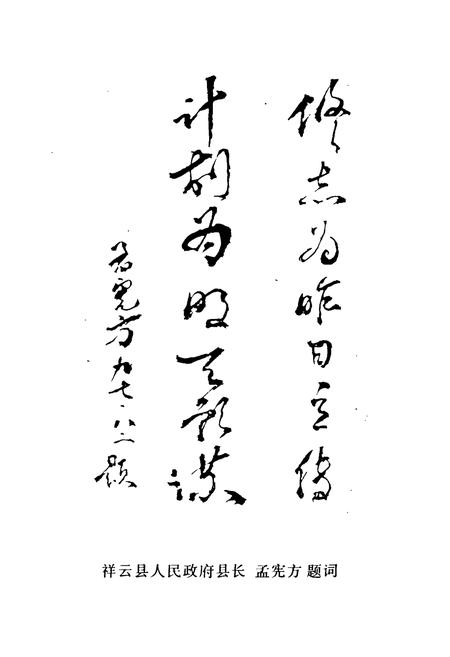 修志为昨日立传
计划为明天谋
孟宪方九七·八·二题
祥云县人民政府县长 孟宪方 题词